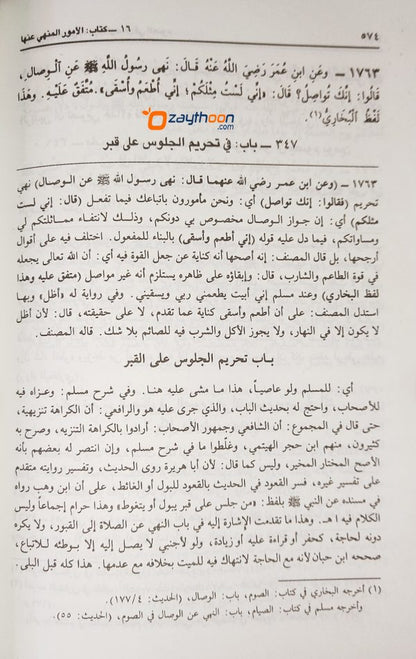 ٥٧٤
١٦ ـ كتاب: الأمور المنهي عنها
١٧٦٣ ـ وَعَنِ ابن عُمَرَ رَضِيَ اللَّهُ عَنْهُ قَالَ: نَهى رَسُولُ اللَّهِ ﷺ عَنِ الْوِصالِ،
قَالُوا: إِنَّكَ تُواصِلُ؟ قَالَ: «إِنِّي لَسْتُ مِثْلَكُمْ؛ إِنِّي أُطْعَمُ وَأُسْقَى». مُتَّفَقٌ عَلَيْهِ. وَهَذَا
لَفْظُ الْبُخَارِيِّ(١).
zaythoon
.com
٣٤٧ ـ باب: في تحريم الجلوس على قبر
١٧٦٣ ـ (وعن ابن عمر رضي الله عنهما قال: نهى رسول الله ﷺ عن الوصال) نهي
تحريم (فقالوا: إنك تواصل) أي: ونحن مأمورون باتباعك فيما تفعل (قال: إني لست
مثلكم) أي: إن جواز الوصال مخصوص بي دونكم، وذلك لانتفاء مماثلتكم لي
ومساواتكم، فيما دل عليه قوله (إني أطعم وأسقى) بالبناء للمفعول. اختلف فيه على أقوال
أرجحها، بل قال المصنف: إنه أصحها أنه كناية عن جعل القوة فيه أي: أن الله تعالى يجعله
في قوة الطاعم والشارب، قال: وإبقاؤه على ظاهره يستلزم أنه غير مواصل (متفق عليه وهذا
لفظ البخاري) وعند مسلم إني أبيت يطعمني ربي ويسقيني. وفي رواية له «أظل» وبها
استدل المصنف: على أن أطعم وأسقى كناية عما تقدم، لا على حقيقته، قال: لأن أظل
لا يكون إلا في النهار، ولا يجوز الأكل والشرب فيه للصائم بلا شك. قاله المصنف.
باب تحريم الجلوس على القبر
أي: للمسلم ولو عاصياً، هذا ما مشى عليه هنا. وفي شرح مسلم: وعزاه فيه
للأصحاب، واحتج له بحديث الباب، والذي جرى عليه هو والرافعي: أن الكراهة تنزيهية،
حتى قال في المجموع: أن الشافعي وجمهور الأصحاب: أرادوا بالكراهة التنزيه، وصرح به
كثيرون، منهم ابن حجر الهيتمي، وغلّطوا ما في شرح مسلم، وإن انتصر له بعضهم بأنه
الأصح المختار المخير، وليس كما قال: لأن أبا هريرة روى الحديث، وتفسير روايته متقدم
على تفسير غيره، فسر القعود في الحديث بالقعود للبول أو الغائط، على أن ابن وهب رواه
في مسنده عن النبي ﷺ بلفظ: «من جلس على قبر يبول أو يتغوط» وهذا حرام إجماعاً وليس
الكلام فيه اهـ. وهذا ما تقدمت الإشارة إليه في باب النهي عن الصلاة إلى القبور، ولا يكره
دونه لحاجة، كحفر أو قراءة عليه أو زيادة، ولو لأجنبي لا يصل إليه إلا بوطئه للاتباع،
صححه ابن حبان لأنه مع الحاجة لانتهاك فيه للميت بخلافه مع عدمها. هذا كله قبل البلى.
(١) أخرجه البخاري في كتاب: الصوم، باب: الوصال، (الحديث: ١٧٧/٤).
وأخرجه مسلم في كتاب: الصيام، باب: النهي عن الوصال في الصوم، (الحديث: ٥٥).